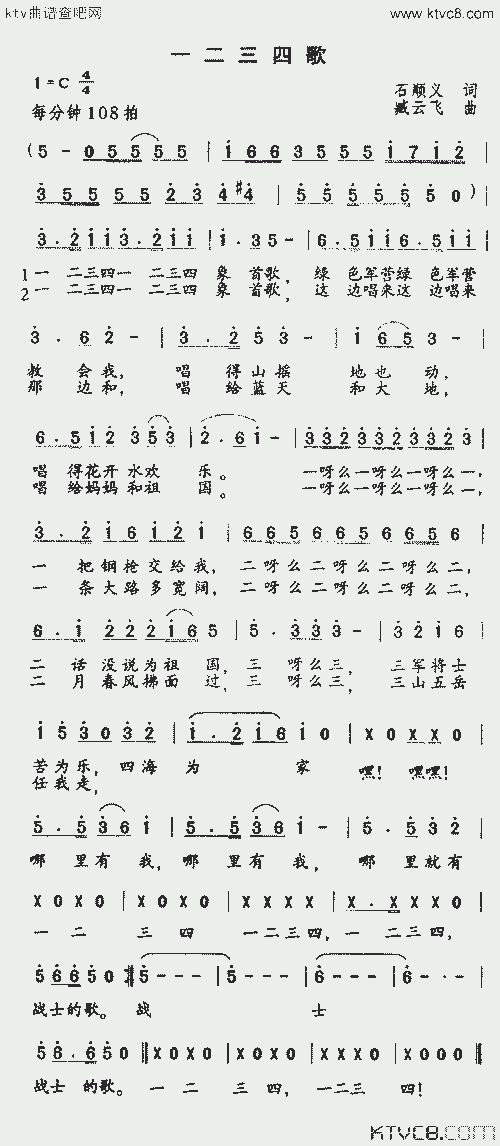 ktv曲谱查吧网 www.ktvc8.com
一二三四歌
1=C 4/4 石顺义 词
每分钟108拍 臧云飞 曲
(5 - 0 5 5 5 5 | 1 6 6 3 5 5 5 | 1 7 1 2 |
3 5 5 5 5 2 3 4 #4 | 5 5 5 5 5 5 0) |
3 . 2 1 1 3 . 2 1 1 | 1 . 3 5 - | 6 . 5 1 1 6 . 5 1 1 |
1 一 二三四一 二三四 象 首歌, 绿 色军营绿 色军营
2 一 二三四一 二三四 象 首歌, 这 边唱来这 边唱来
3 . 6 2 - | 3 . 2 5 3 - | 1 6 5 3 - |
教 会我, 唱 得山摇 地也 动,
那 边和, 唱 给蓝天 和大 地,
6 . 5 1 2 3 5 3 | 2 . 6 1 - | 3 3 2 3 3 2 3 3 2 3 |
唱 得花开 水欢 乐。 一呀么一呀么一呀么一,
唱 给妈妈 和祖 国。 一呀么一呀么一呀么一,
3 . 2 1 6 1 2 1 | 6 6 5 6 6 5 6 6 5 6 |
一 把钢枪交给我, 二呀么二呀么二呀么二,
一 条大路多宽阔, 二呀么二呀么二呀么二,
6 . 1 2 2 2 1 6 5 | 5 . 3 3 3 - | 3 2 1 6 |
二 话没说为祖 国, 三 呀么三, 三军将士
二 月春风拂面 过, 三 呀么三, 三山五岳
1 5 3 0 3 2 | 1 . 2 1 6 1 0 | X 0 X X 0 |
苦为乐, 四海 为 家 嘿! 嘿嘿!
任我走,
5 . 5 3 6 1 | 5 . 5 3 6 1 - | 5 . 5 3 2 |
哪 里有 我, 哪 里有 我, 哪 里就有
X 0 X 0 | X 0 X 0 | X X X X | X . X X X 0 |
一 二 三 四 一二三四, 一 二三四,
5 6 6 5 0 5 - - - | 5 - - - | 6 - - - | 6 - - - |
战士的歌。 战 士
5 6 . 6 5 0 X 0 X 0 | X 0 X 0 | X X X 0 X 0
战士 的歌。 一 二 三 四, 一二三 四!
KTVC8.com